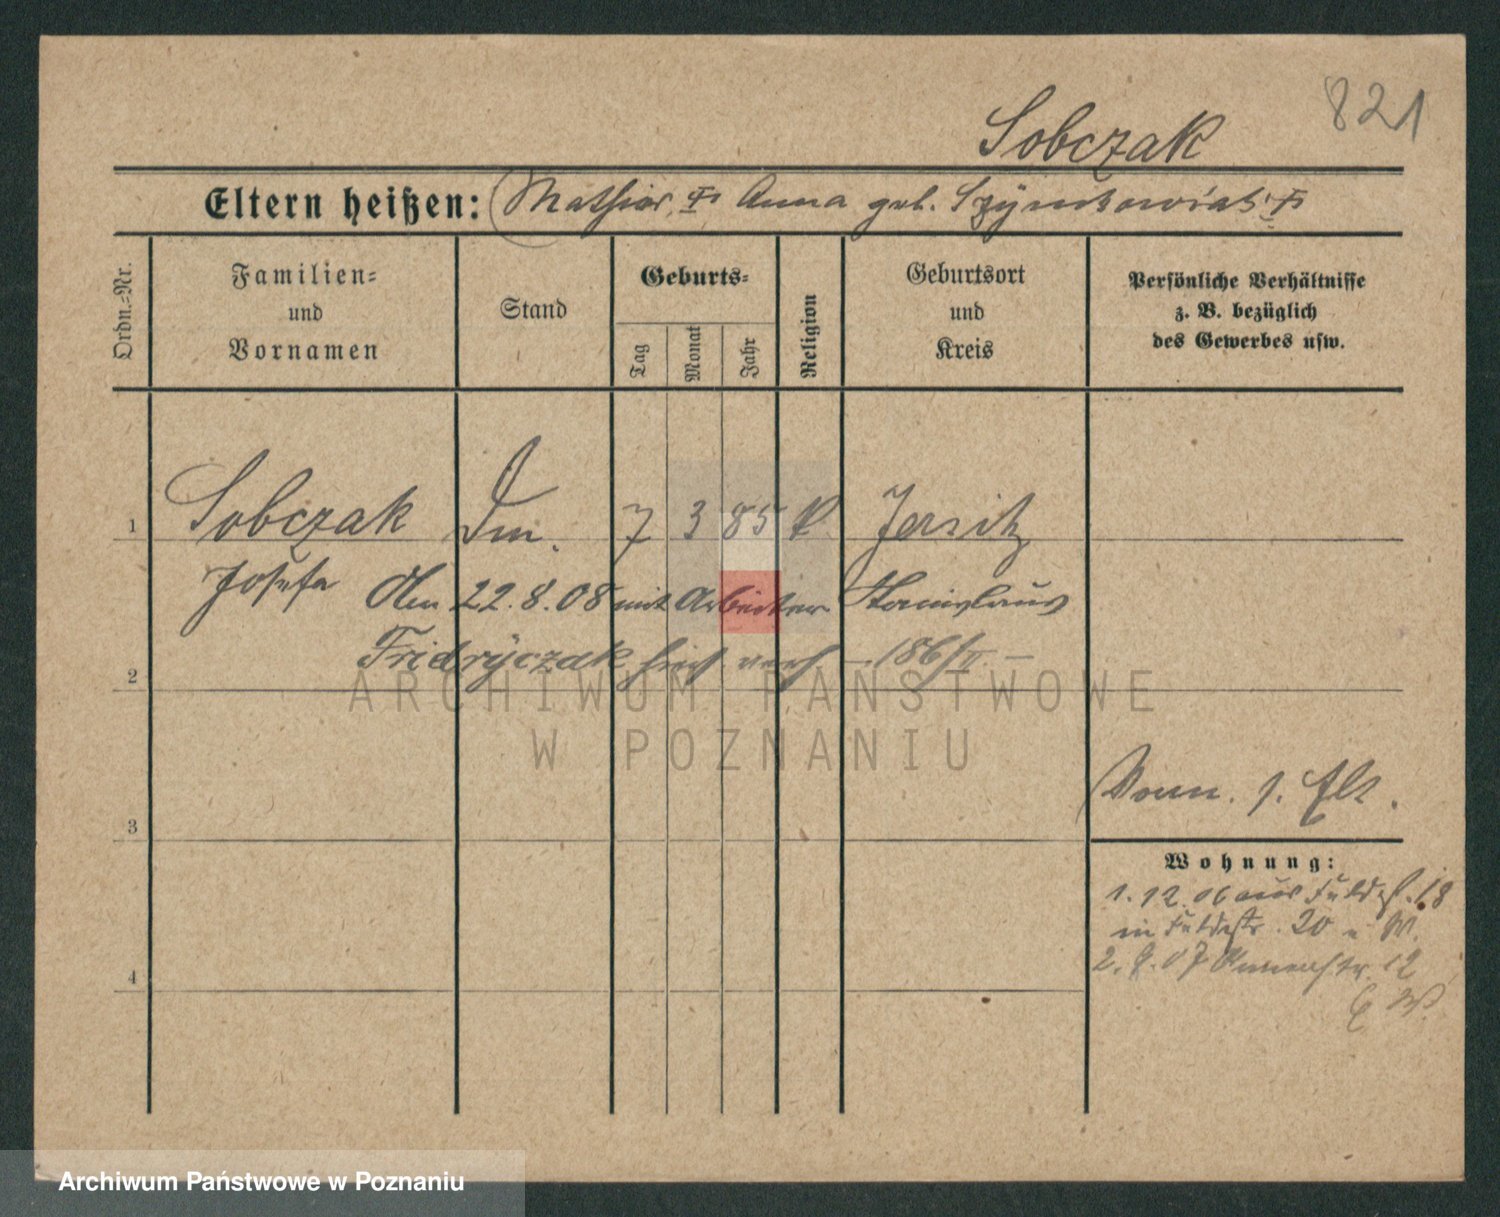 821
Sobczak
Eltern heißen: Mathias, Anna geb. Szymkowiak
Ordn.-Nr.
Familien-
und
Vornamen
Stand
Geburts-
Tag
Monat
Jahr
Religion
Geburtsort
und
Kreis
Persönliche Verhältnisse
z. B. bezüglich
des Gewerbes usw.
1 Sobczak 7 3 85 K Jersitz
Josefa Am 22.8.08 mit Arbeiter Stanislaus
2 Fridryczak hier verh – 186/II –
ARCHIWUM PAŃSTWOWE
W POZNANIU
3
Wohnung:
1.12.06 aus 18
in 20
2. 07 12
4
Archiwum Państwowe w Poznaniu